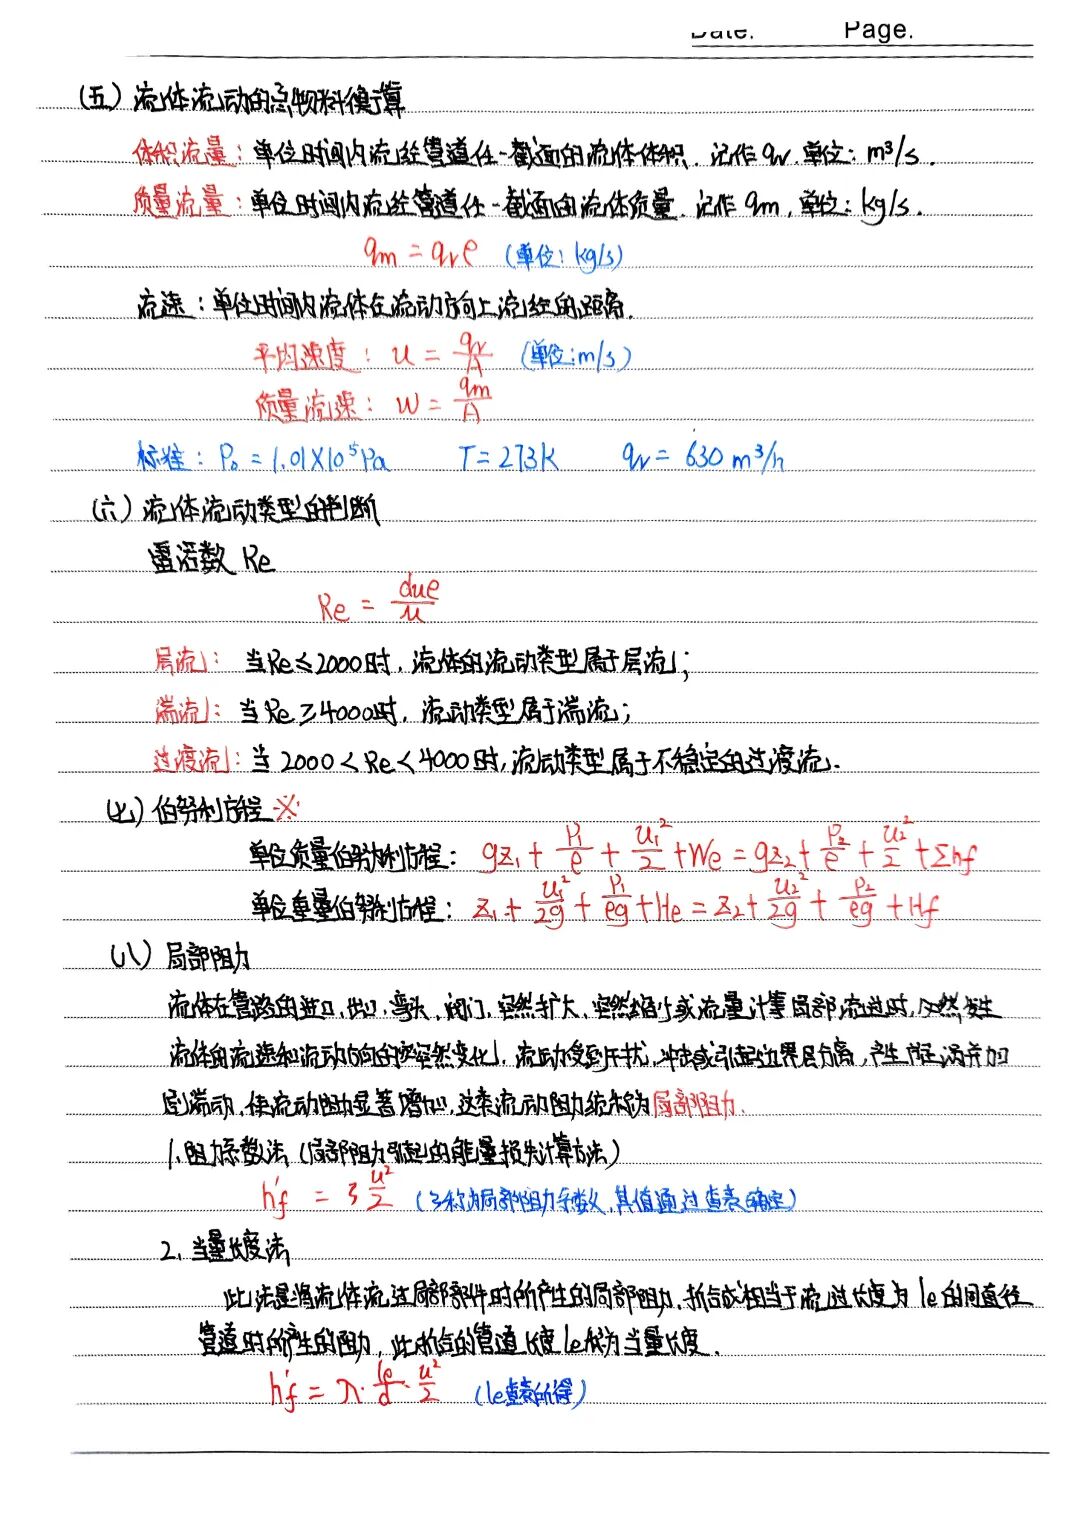 Date. Page.
(五) 流体流动的总物料衡算
体积流量：单位时间内流经管道任一截面的流体体积. 记作 qv. 单位：m³/s.
质量流量：单位时间内流经管道任一截面的流体质量. 记作 qm, 单位：kg/s.
qm = qvρ (单位：kg/s)
流速：单位时间内流体在流动方向上流经的距离.
平均速度：u = qv/A (单位：m/s)
质量流速：W = qm/A
标准：P₀ = 1.01X10⁵Pa T = 273K qv = 630 m³/h
(六) 流体流动类型的判断
雷诺数 Re
Re = duρ/μ
层流：当Re ≤ 2000时, 流体的流动类型属于层流；
湍流：当 Re ≥ 4000时, 流动类型属于湍流；
过渡流：当 2000 < Re < 4000时, 流动类型属于不稳定的过渡流.
(七) 伯努利方程 ※
单位质量伯努利方程：gz₁ + P₁/ρ + u₁²/2 + We = gz₂ + P₂/ρ + u₂²/2 + Σhf
单位重量伯努利方程：z₁ + u₁²/2g + P₁/ρg + He = z₂ + u₂²/2g + P₂/ρg + Hf
(八) 局部阻力
流体在管路的进口, 出口, 弯头, 阀门, 突然扩大, 突然缩小或流量计等局部流过时, 必然发生
流体的流速和流动方向的突然变化, 流动受到干扰, 冲击或引起边界层分离, 产生漩涡并加
剧湍动, 使流动阻力显著增加, 这类流动阻力统称为局部阻力.
1. 阻力系数法 (局部阻力引起的能量损失计算方法)
h'f = ζ u²/2 (ζ称为局部阻力系数, 其值通过查表确定)
2. 当量长度法
此法是将流体流过局部部件时所产生的局部阻力, 折合成相当于流过长度为 le 的同直径
管道时所产生的阻力, 此折合的管道长度 le 称为当量长度.
h'f = λ · le/d · u²/2 (le查表所得)